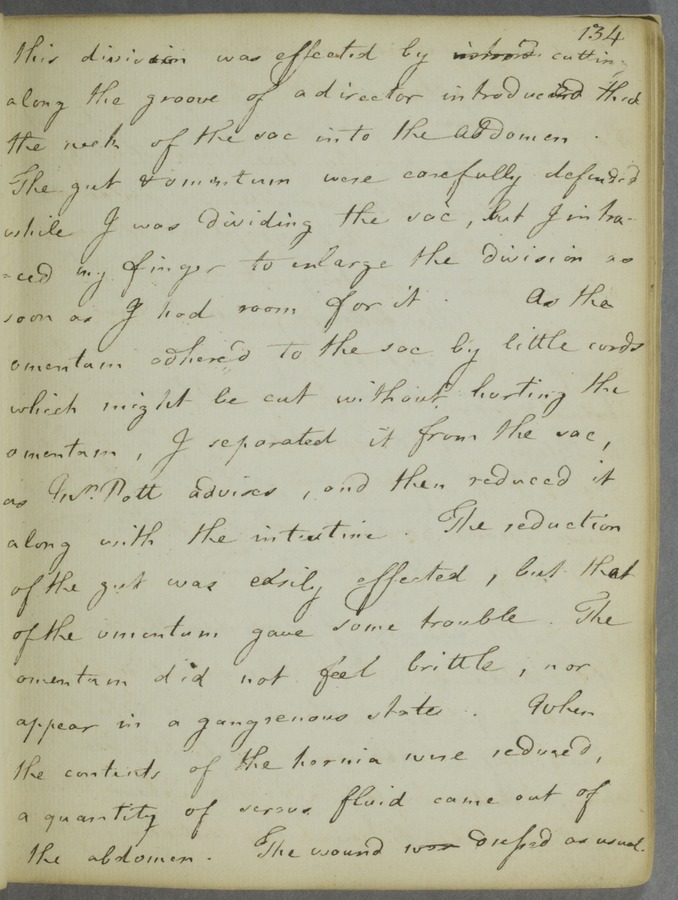 134
this division was effected by cutting
along the groove of a director introduced thro'
the neck of the sac into the abdomen.
The gut & omentum were carefully defended
while I was dividing the sac, but I intro-
-ced my finger to enlarge the division as
soon as I had room for it. As the
omentum adhered to the sac by little cords
which might be cut without hurting the
omentum, I separated it from the sac,
as Mr. Pott advises, and then reduced it
along with the intestine. The reduction
of the gut was easily effected, but that
of the omentum gave some trouble. The
omentum did not feel brittle, nor
appear in a gangrenous state. When
the contents of the hernia were reduced,
a quantity of serous fluid came out of
the abdomen. The wound was dressed as usual.